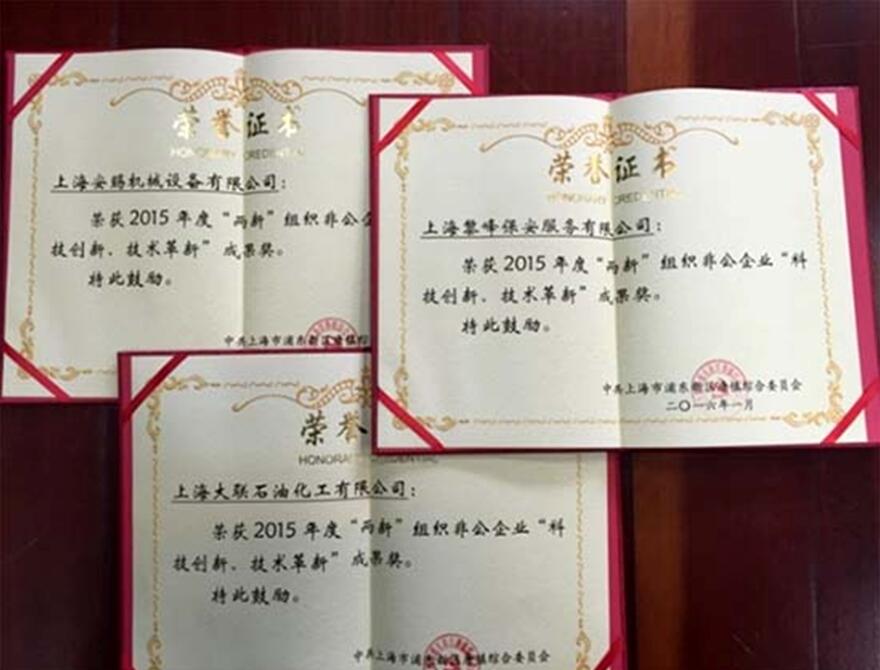 荣誉证书
HONORARY CREDENTIAL
上海安赐机械设备有限公司：
荣获2015年度“两新”组织非公企
技创新、技术革新”成果奖。
特此鼓励。
中共上海市浦东新区唐镇
荣誉证书
HONORARY CREDENTIAL
上海黎峰保安服务有限公司：
荣获2015年度“两新”组织非公企业“科
技创新、技术革新”成果奖。
特此鼓励。
中共上海市浦东新区唐镇综合委员会
二〇一六年一月
荣誉
HONORARY CREDENTIAL
上海大联石油化工有限公司：
荣获2015年度“两新”组织非公企业“科
技创新、技术革新”成果奖。
特此鼓励。
中共上海市浦东新区唐镇综合委员会